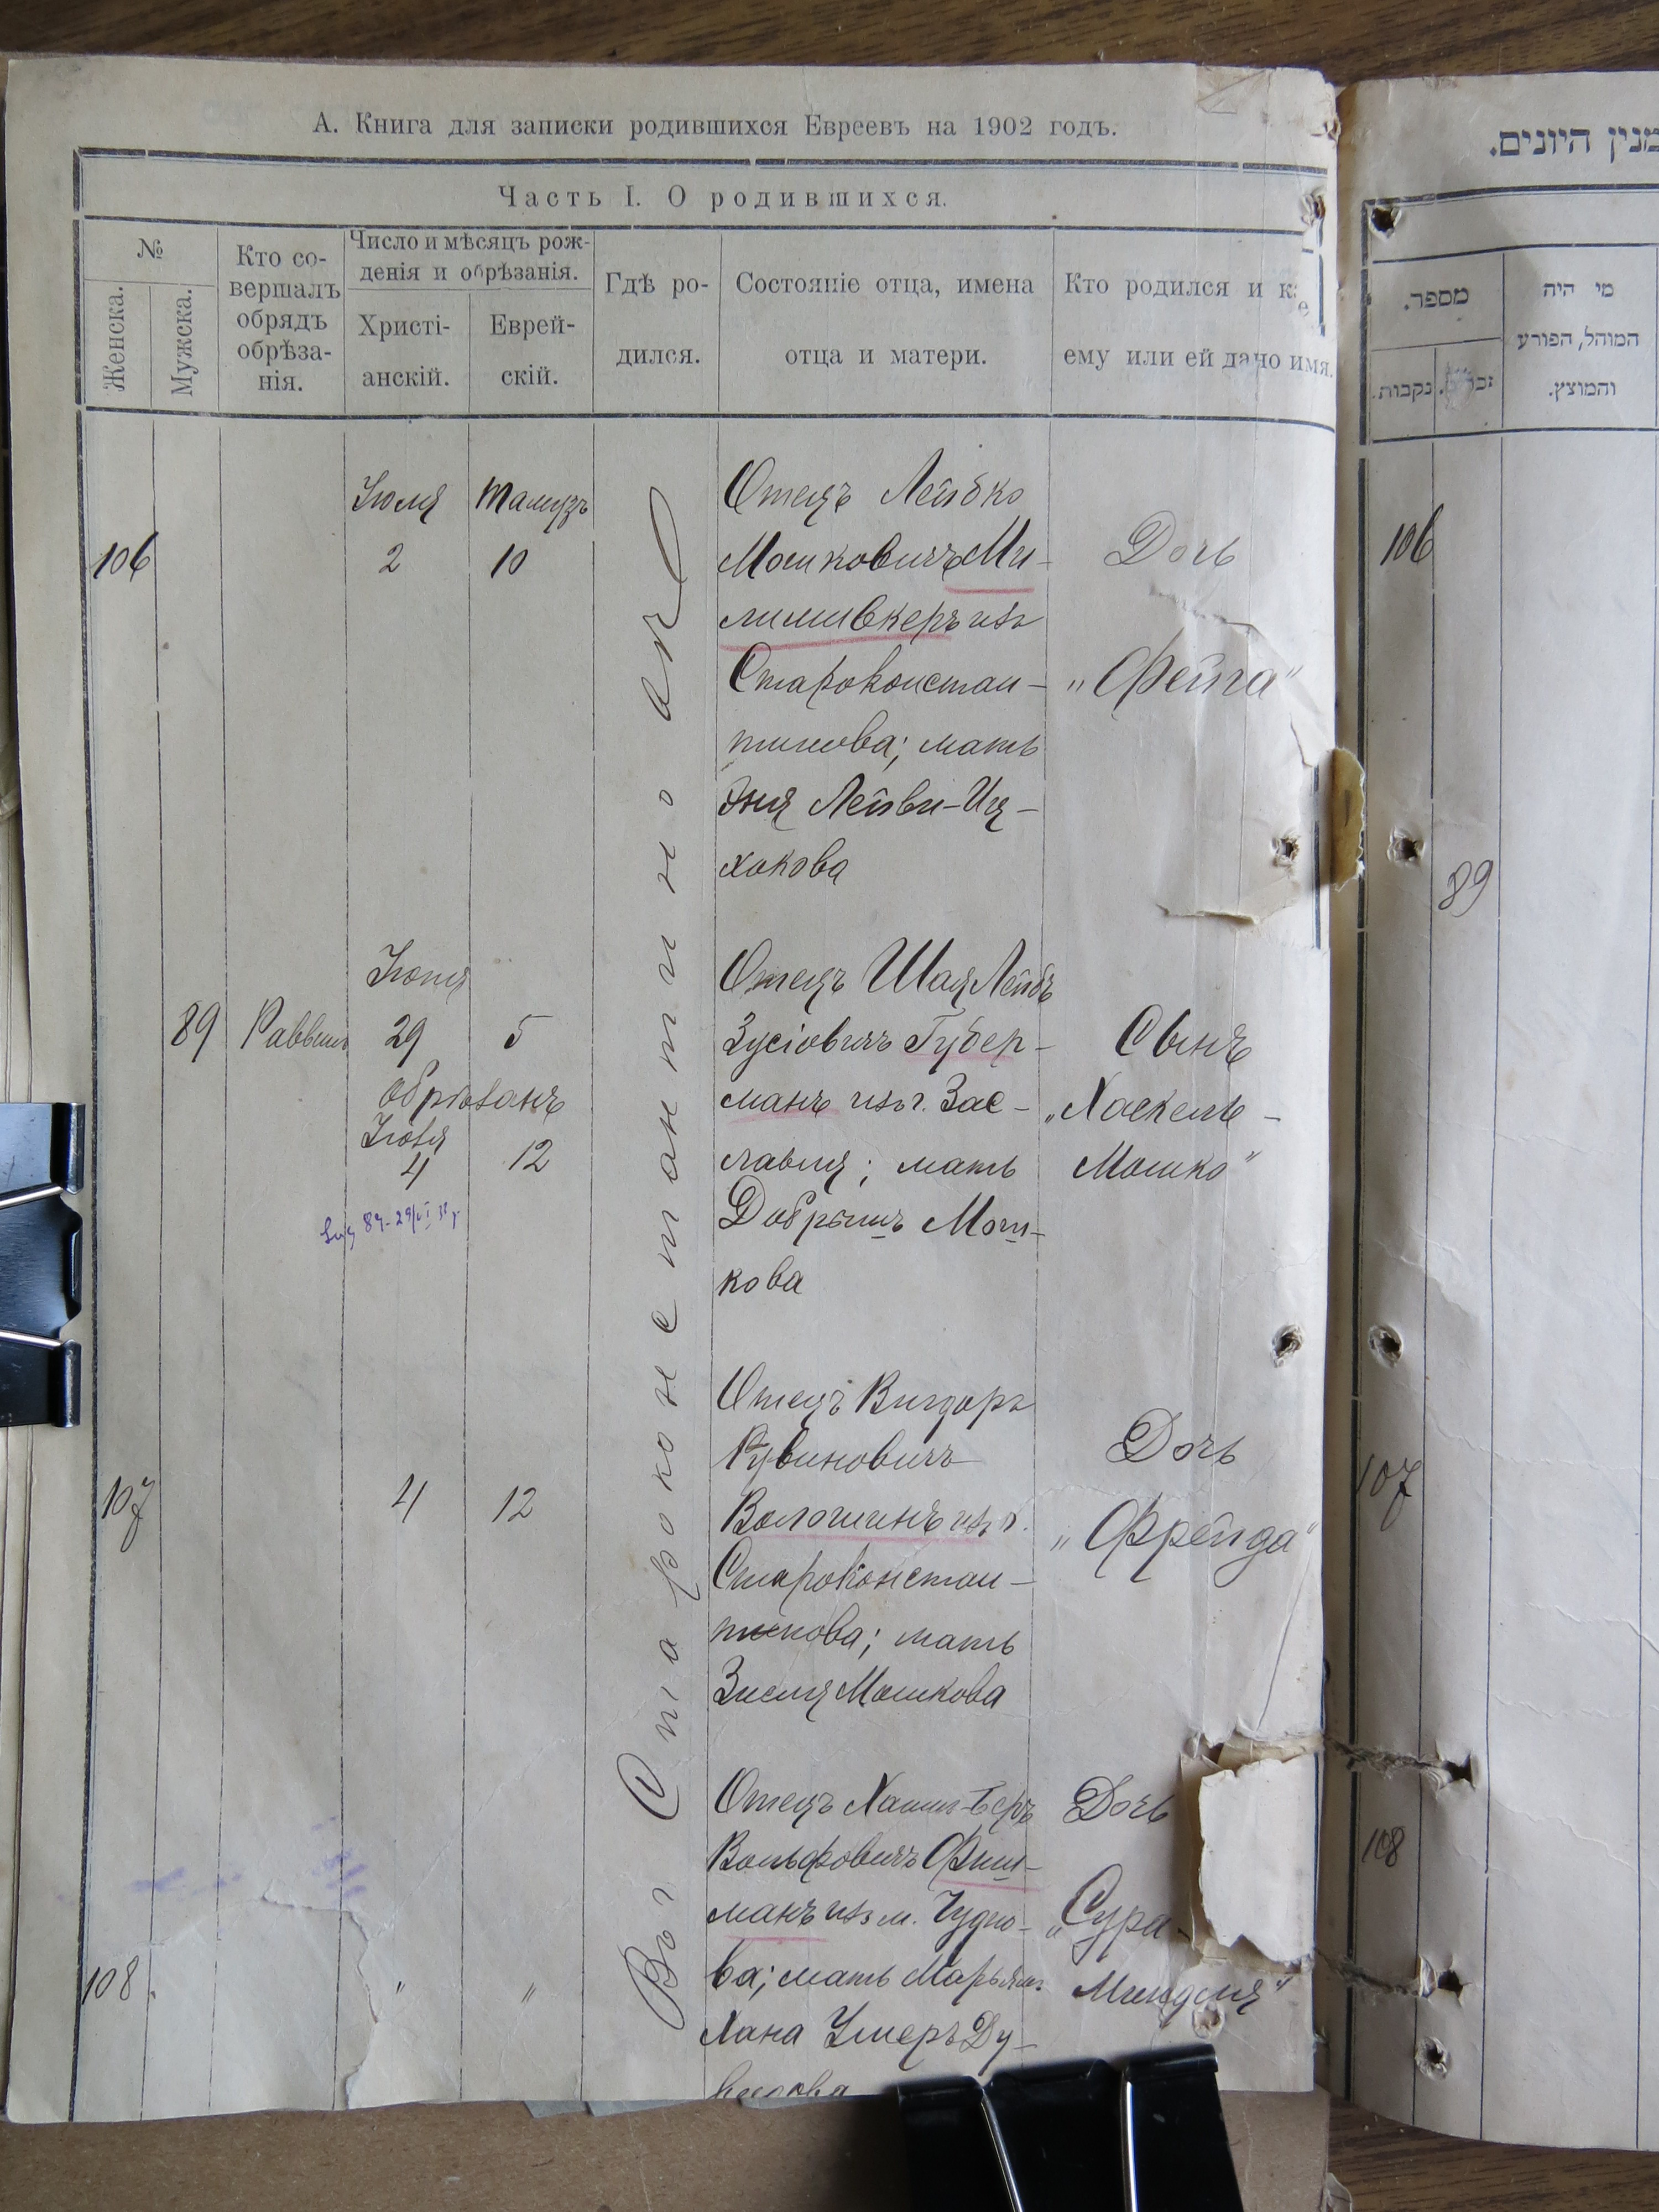 А. Книга для записки родившихся Евреевъ на 1902 годъ.
Часть I. О родившихся.
№
Женска.
Мужска.
Кто со-
вершалъ
обрядъ
обрѣза-
нія.
Число и мѣсяцъ рож-
денія и обрѣзанія.
Христі-
анскій.
Еврей-
скій.
Гдѣ ро-
дился.
Состояніе отца, имена
отца и матери.
Кто родился и к е
ему или ей дано имя.
Въ г. Староконстантиновѣ
106
Іюля
2
Тамузъ
10
Отецъ Лейбко
Мошковичъ Ми-
лиливкеръ изъ
Староконстан-
тинова; мать
Эня Лейви-Иц-
хокова
Дочь
"Фейга"
89
Раввинъ
Іюня
29
5
обрѣзанъ
Іюля
4
12
Отецъ Шая Лейбъ
Зусіовичъ Губер-
манъ изъ г. Зас-
лавля; мать
Добрышъ Мош-
кова
Сынъ
"Хаскель-
Мошко"
107
4
12
Отецъ Вигдоръ
Рувиновичъ
Волошинъ изъ г.
Староконстан-
тинова; мать
Зисля Мошкова
Дочь
"Фрейда"
108
"
"
Отецъ Хаим-Беръ
Вольфовичъ Фиш-
манъ изъ м. Чудно-
ва; мать Марьям-
Хана Умеръ Ду-
Дочь
"Сура-
Миндля"
מנין היונים.
מספר.
נקבות.
מי היה
המוהל, הפורע
והמוצץ.
106
89
107
108